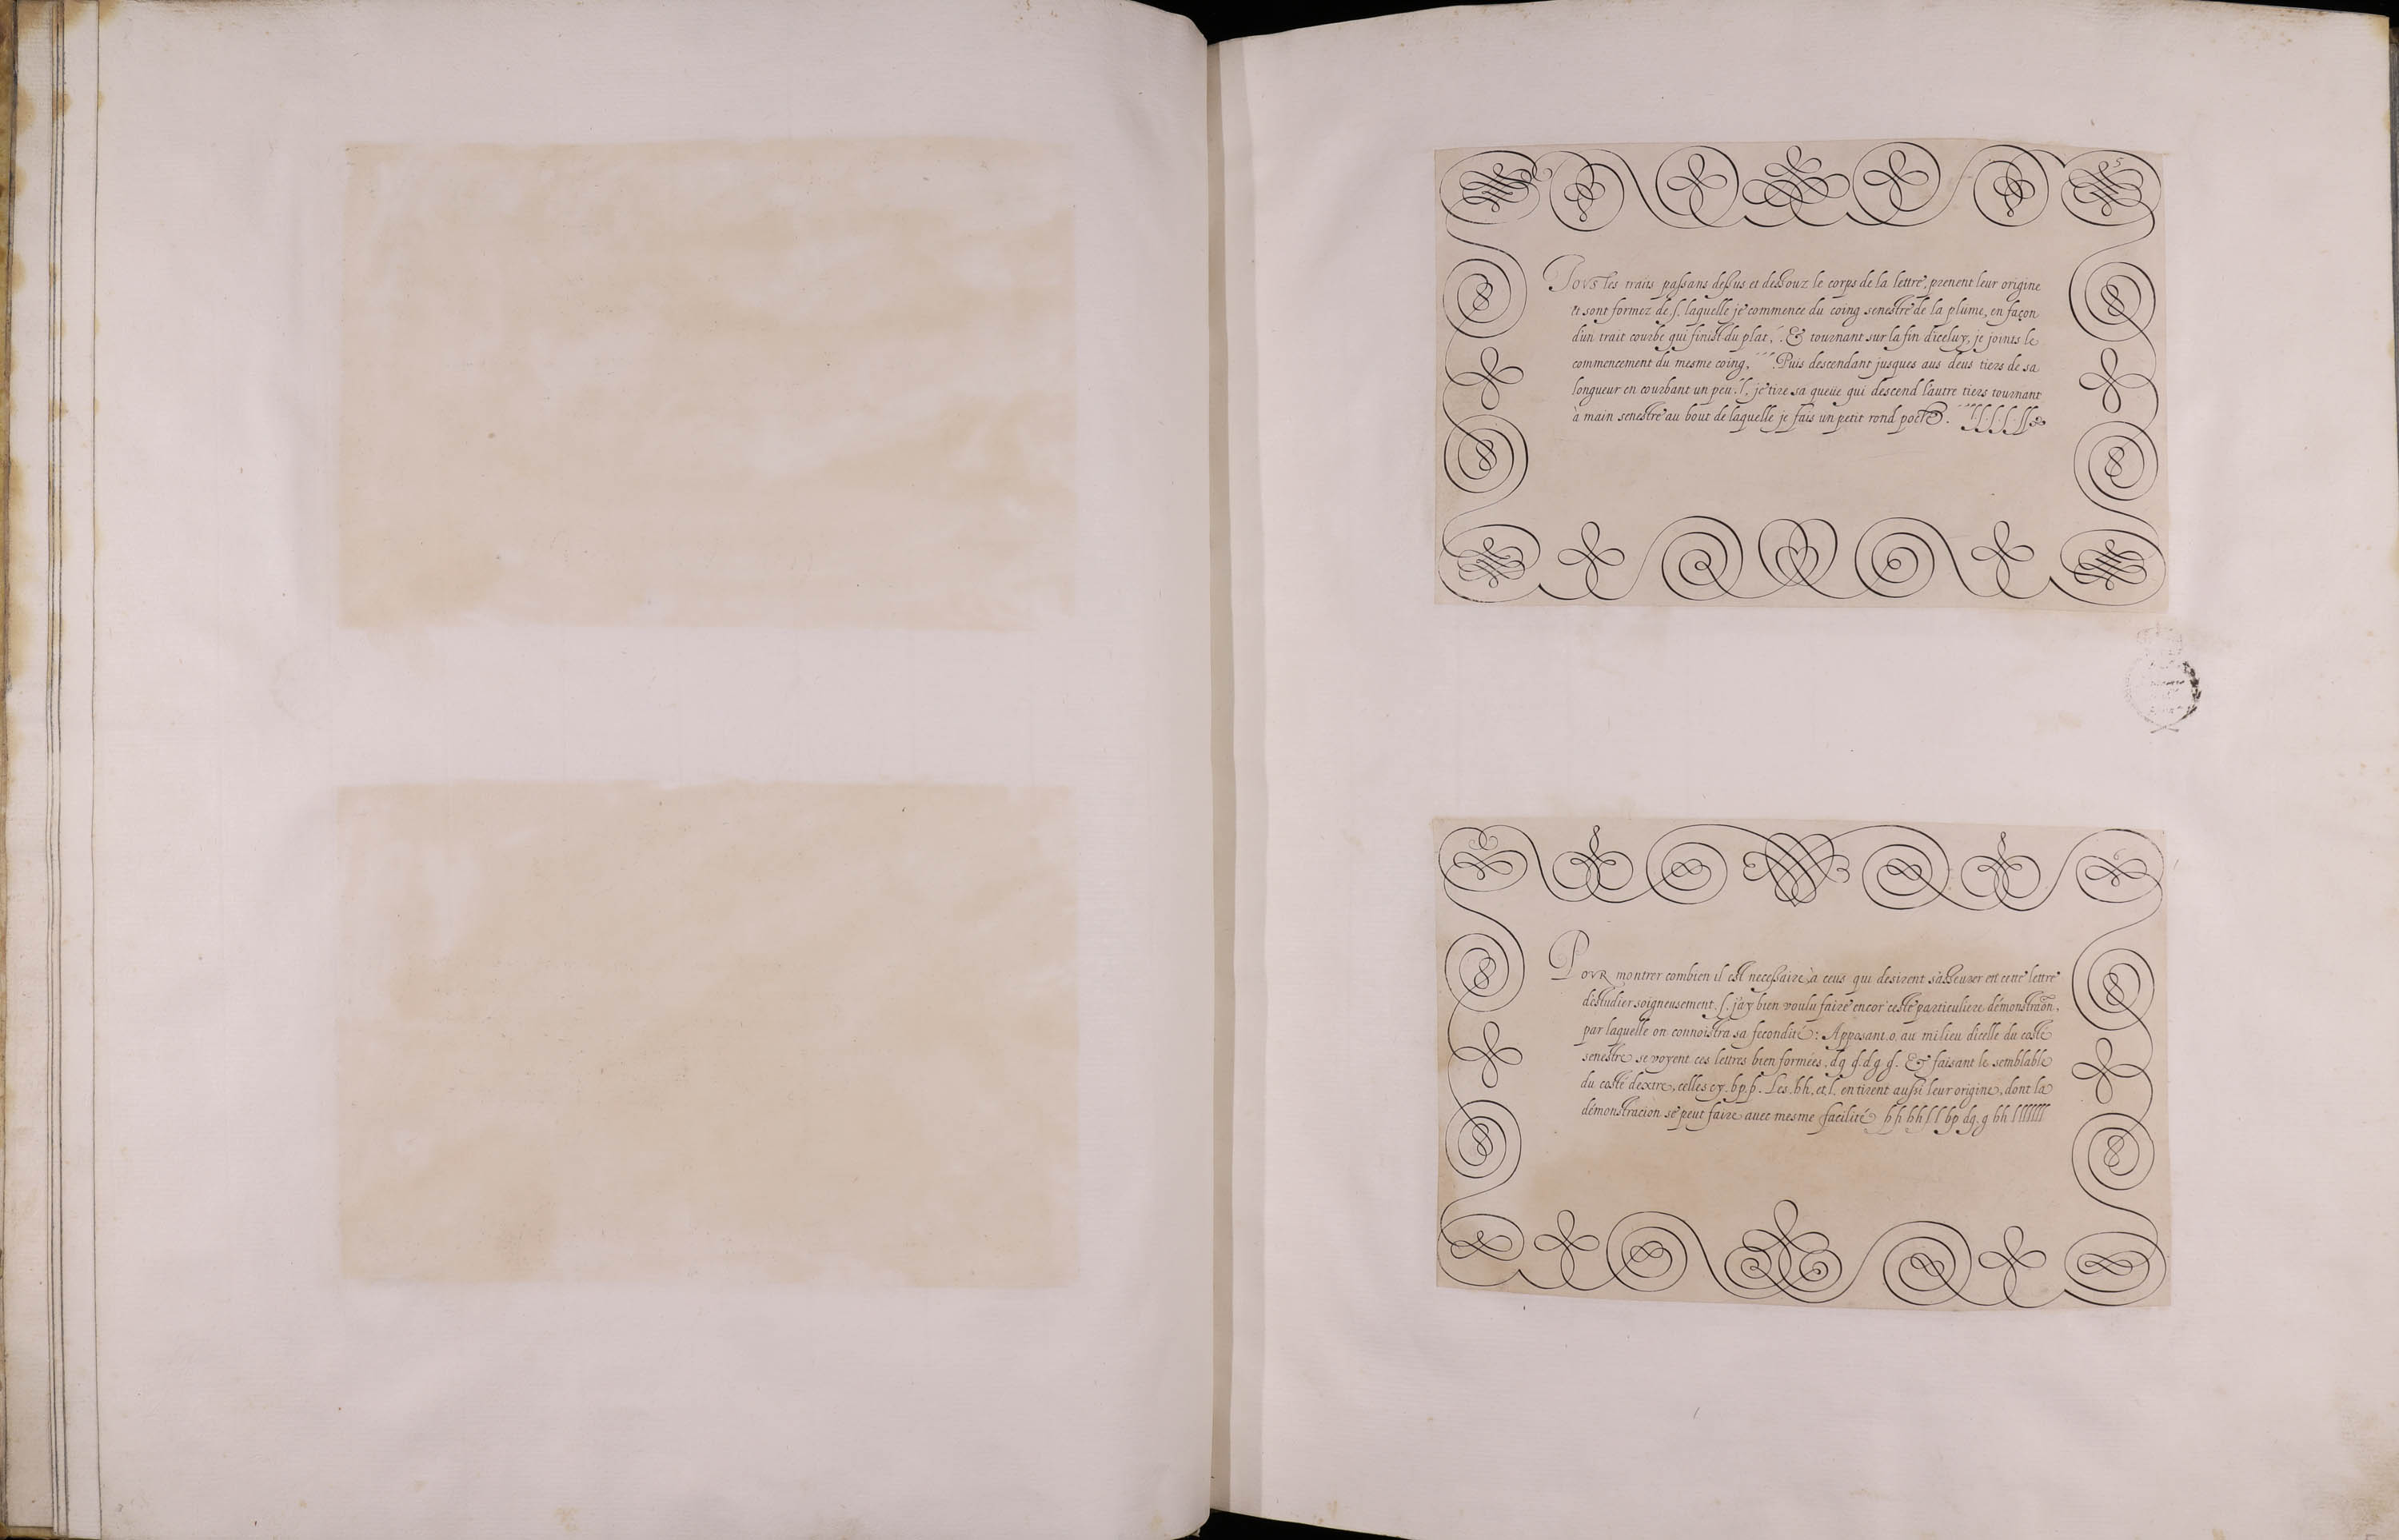 5
TOVS les traits passans dessus et dessouz le corps de la lettre, prenent leur origine
et sont formez de .ſ. laquelle je commence du coing senestre de la plume, en façon
d'un trait courbe qui finist du plat, ´. & tournant sur la fin d'iceluy, je joints le
commencement du mesme coing, ´´´. Puis descendant jusques aus deus tiers de sa
longueur en courbant un peu .ſ. je tire sa queüe qui descend l'autre tiers tournant
à main senestre au bout de laquelle je fais un petit rond
6
POVR montrer combien il est necessaire à ceus qui desirent s'asseurer en cette lettre
d'estudier soigneusement .ſ. j'ay bien voulu faire encor ceste particuliere démonstraõn,
par laquelle on connoistra sa fecondité: Apposant .o. au milieu d'icelle du costé
senestre se voyent ces lettres bien formées, dq ɖ. dq ɖ. & faisant le semblable
du costé dextre, celles cy. bp þ. Les .hh. et .l. en tirent aussi leur origine, dont la
démonstracion se peut faire avec mesme facilité